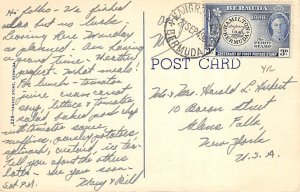 Hi folks - We fished
also but no luck.
Leaving here Monday
as planned - Are having
a grand time - Weather
perfect. What meals!
For lunch - tomato
juice, cream carrot
soup, lettuce & tomatoes
salad, baked pork chop
with tomatoe sauce,
muffins, parsley potatoes,
spinach, custard, ice tea.
Tell you about the
later - See you soon.
Sat. P.M. Mary & Bill
BERMUDA
BERMUDA 1848
HAMILTON
POSTAGE STAMP
CENTENARY OF FIRST POSTAGE STAMP
3d
POST CARD
Mr. & Mrs. Harold L.
10 Bacon Street
Glens Falls,
New York
U.S.A.